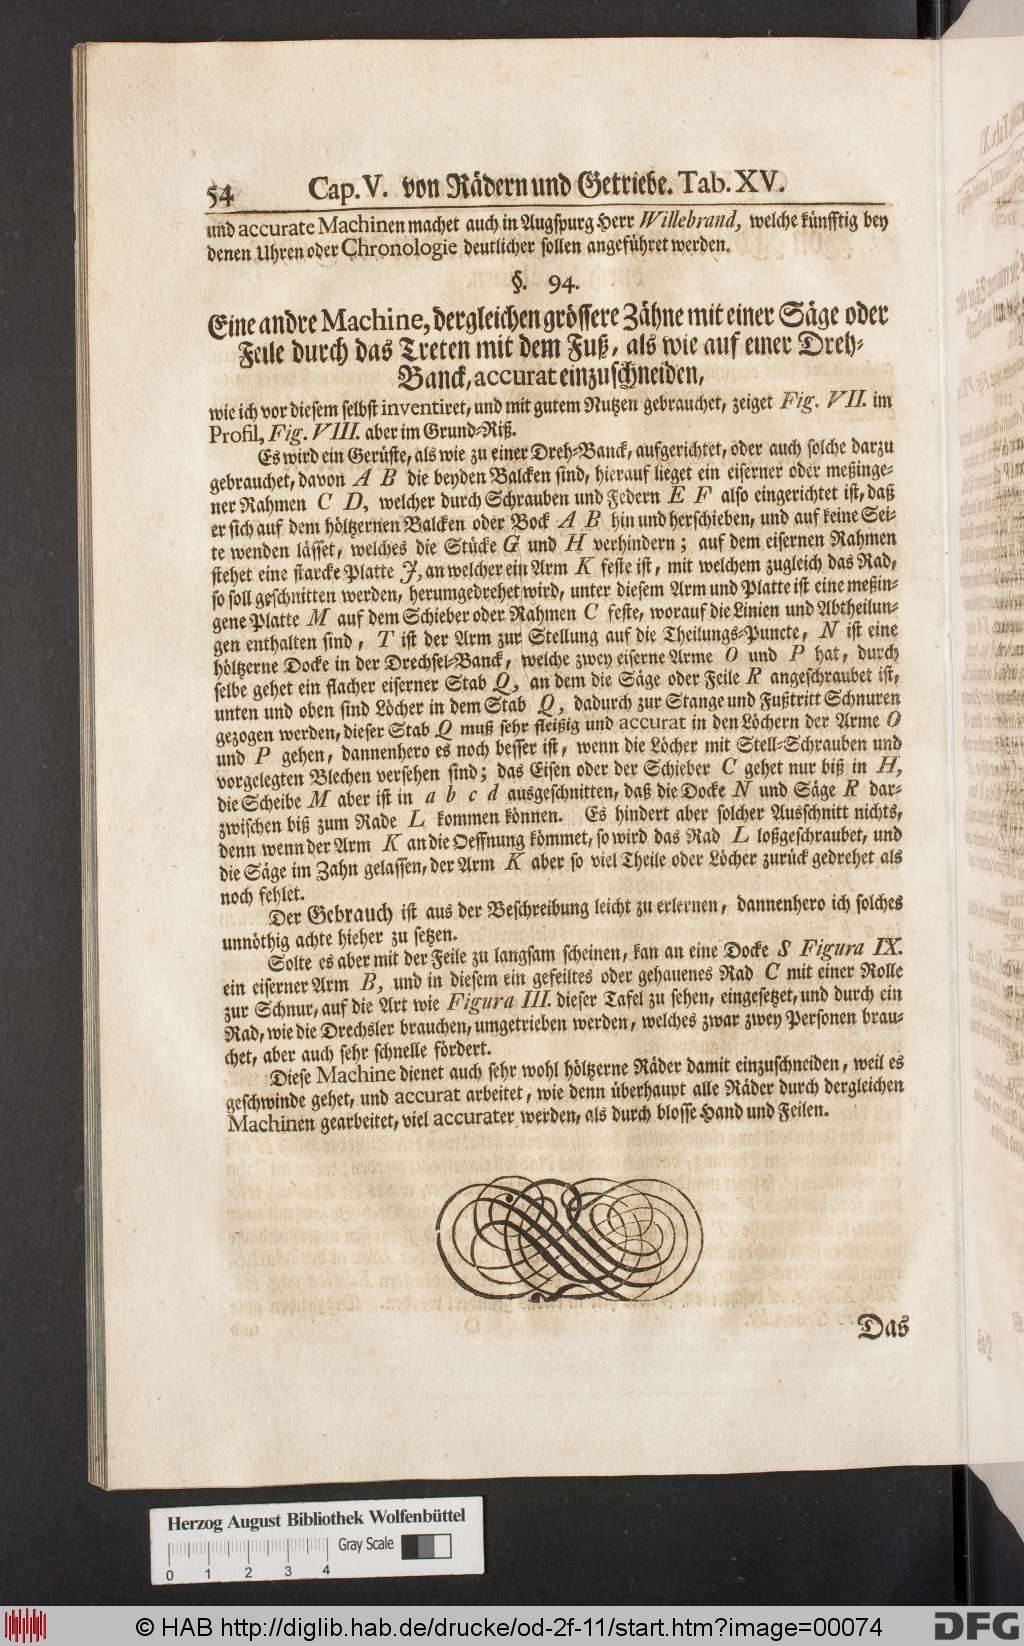 54 Cap. V. von Rädern und Getriebe. Tab. XV.
und accurate Machinen machet auch in Augspurg Herr Willebrand, welche künfftig bey
denen Uhren oder Chronologie deutlicher sollen angeführet werden.
§. 94.
Eine andre Machine, dergleichen grössere Zähne mit einer Säge oder
Feile durch das Treten mit dem Fuß, als wie auf einer Dreh-
Banck, accurat einzuschneiden,
wie ich vor diesem selbst inventiret, und mit gutem Nutzen gebrauchet, zeiget Fig. VII. im
Profil, Fig. VIII. aber im Grund-Riß.
Es wird ein Gerüste, als wie zu einer Dreh-Banck, aufgerichtet, oder auch solche darzu
gebrauchet, davon A B die beyden Balcken sind, hierauf lieget ein eiserner oder meßinge-
ner Rahmen C D, welcher durch Schrauben und Federn E F also eingerichtet ist, daß
er sich auf dem höltzernen Balcken oder Bock A B hin und herschieben, und auf keine Sei-
te wenden lässet, welches die Stücke G und H verhindern; auf dem eisernen Rahmen
stehet eine starcke Platte J, an welcher ein Arm K feste ist, mit welchem zugleich das Rad,
so soll geschnitten werden, herumgedrehet wird, unter diesem Arm und Platte ist eine meßin-
gene Platte M auf dem Schieber oder Rahmen C feste, worauf die Linien und Abtheilun-
gen enthalten sind, T ist der Arm zur Stellung auf die Theilungs-Puncte, N ist eine
höltzerne Docke in der Drechsel-Banck, welche zwey eiserne Arme O und P hat, durch
selbe gehet ein flacher eiserner Stab Q, an dem die Säge oder Feile R angeschraubet ist,
unten und oben sind Löcher in dem Stab Q, dadurch zur Stange und Fußtritt Schnuren
gezogen werden, dieser Stab Q muß sehr fleißig und accurat in den Löchern der Arme O
und P gehen, dannenhero es noch besser ist, wenn die Löcher mit Stell-Schrauben und
vorgelegten Blechen versehen sind; das Eisen oder der Schieber C gehet nur biß in H,
die Scheibe M aber ist in a b c d ausgeschnitten, daß die Docke N und Säge R dar-
zwischen biß zum Rade L kommen können. Es hindert aber solcher Ausschnitt nichts,
denn wenn der Arm K an die Oeffnung kömmet, so wird das Rad L loßgeschraubet, und
die Säge im Zahn gelassen, der Arm K aber so viel Theile oder Löcher zurück gedrehet als
noch fehlet.
Der Gebrauch ist aus der Beschreibung leicht zu erlernen, dannenhero ich solches
unnöthig achte hieher zu setzen.
Solte es aber mit der Feile zu langsam scheinen, kan an eine Docke S Figura IX.
ein eiserner Arm B, und in diesem ein gefeiltes oder gehauenes Rad C mit einer Rolle
zur Schnur, auf die Art wie Figura III. dieser Tafel zu sehen, eingesetzet, und durch ein
Rad, wie die Drechsler brauchen, umgetrieben werden, welches zwar zwey Personen brau-
chet, aber auch sehr schnelle fördert.
Diese Machine dienet auch sehr wohl höltzerne Räder damit einzuschneiden, weil es
geschwinde gehet, und accurat arbeitet, wie denn überhaupt alle Räder durch dergleichen
Machinen gearbeitet, viel accurater werden, als durch blosse Hand und Feilen.
Das
Herzog August Bibliothek Wolfenbüttel
Gray Scale
0 1 2 3 4
© HAB http://diglib.hab.de/drucke/od-2f-11/start.htm?image=00074
DFG